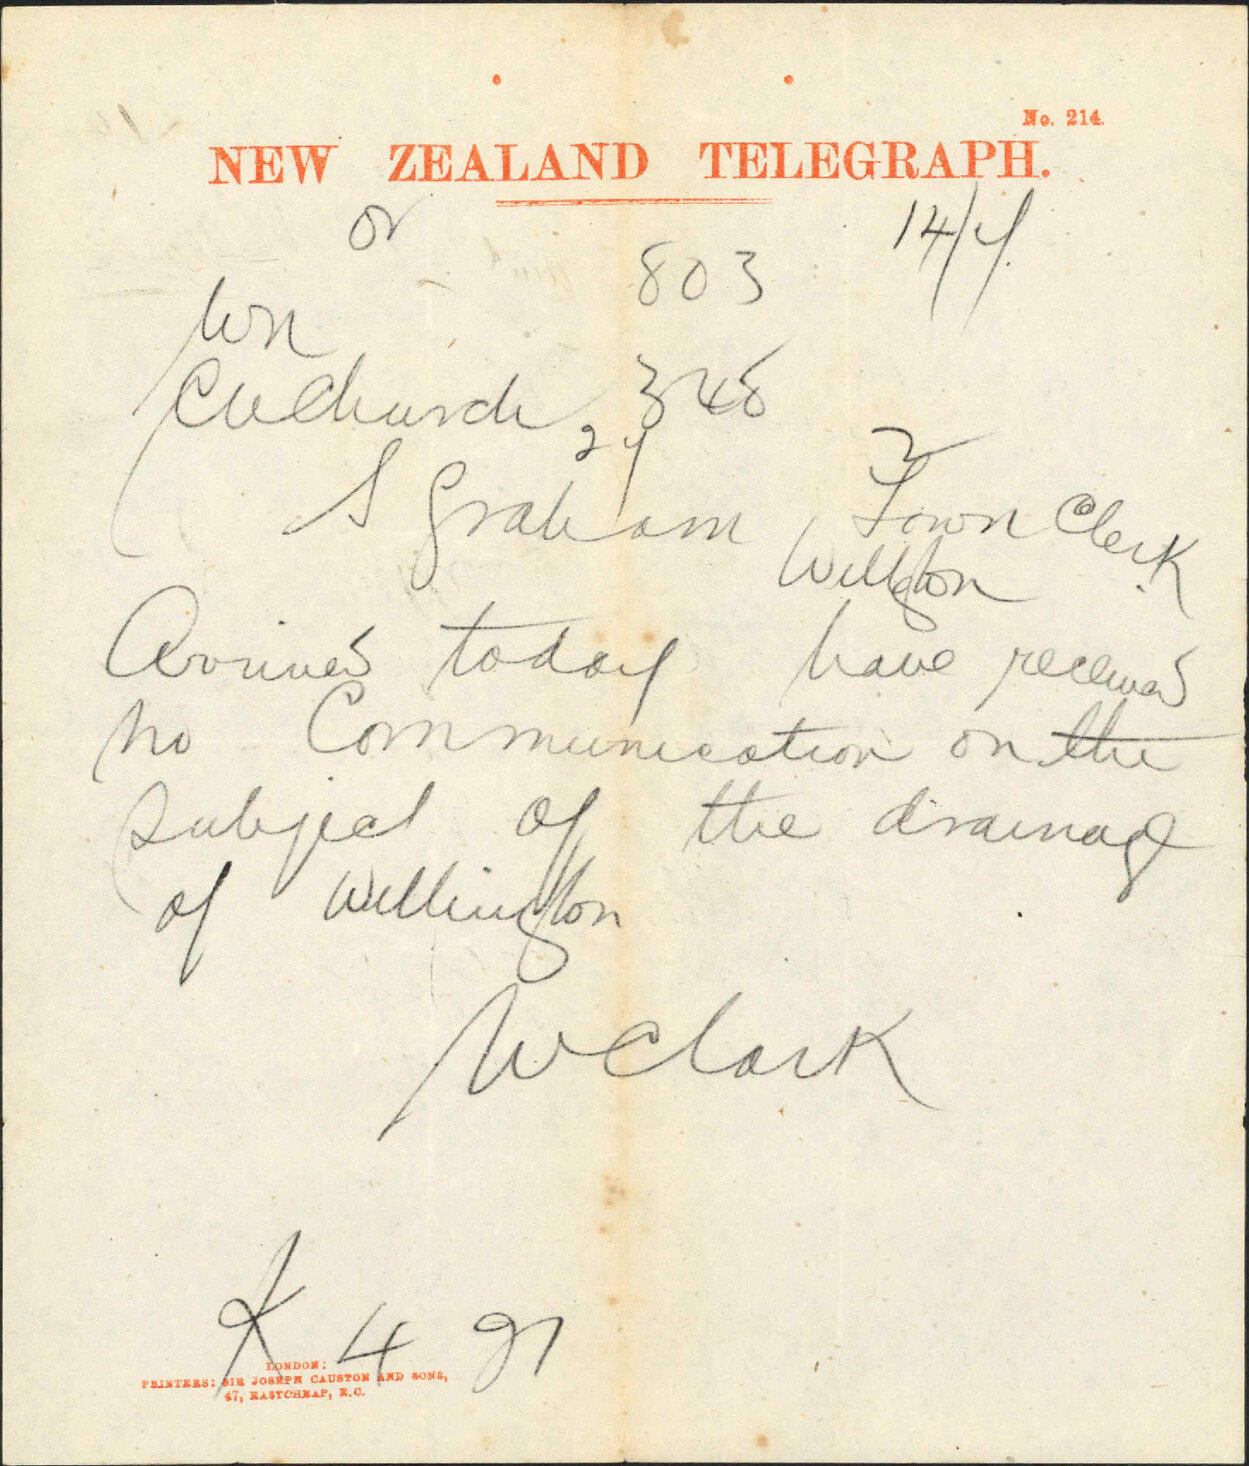 No. 214.
NEW ZEALAND TELEGRAPH.
or
803
Wn
348
S Graham Town Clerk
Wellgton
Arrived today have received
no Communication on the
subject of the drainage
of Wellington
W Clark
K 4
LONDON:
PRINTERS: SIR JOSEPH CAUSTON AND SONS,
47, EASTCHEAP, E.C.